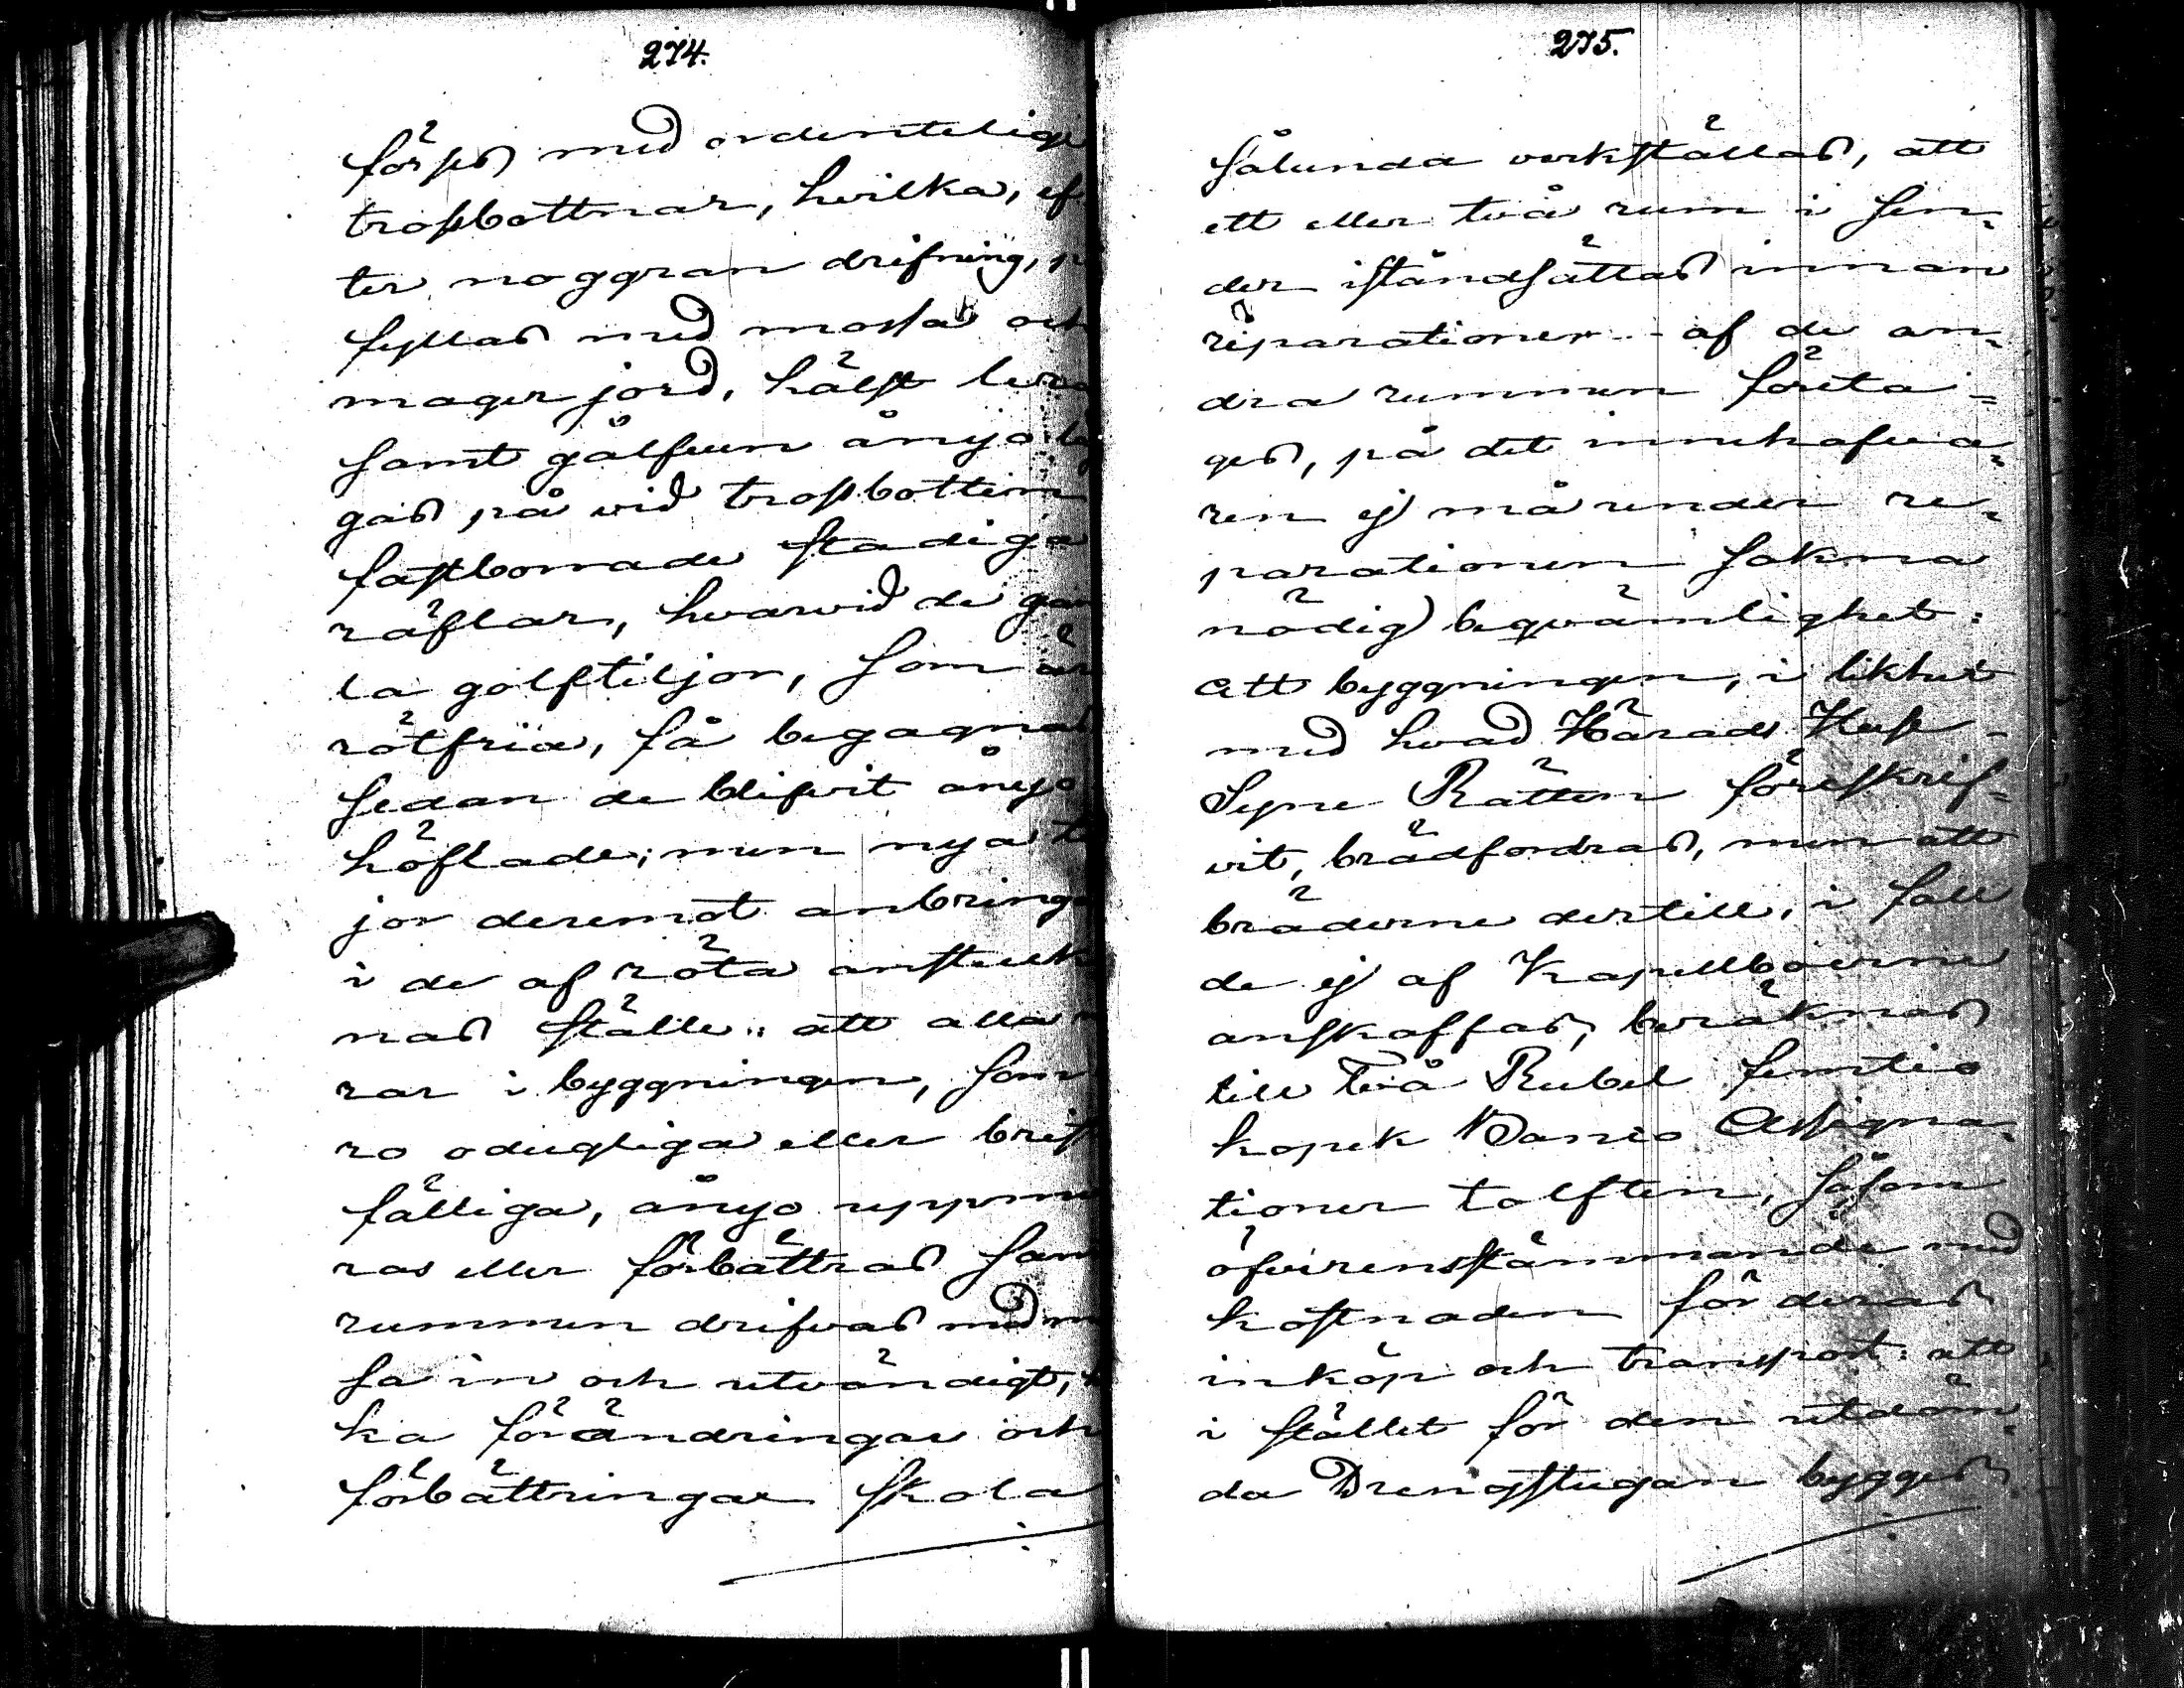 274.
förses med ordentelige
trossbottnar, hvilka, ef
ter noggran drifning, på
fyllas med mossa och
mager jord, hälst lera
samt golfven ånyo läg
gas på vid trossbotten
fastbomade stadiga
räflar, hvarvid de gam
la golftiljor, som är
rötfria, få begagnas
sedan de blifvit ånyo
höflade; men nya til
jor deremot anbringa
i de af röta anstuck
nas ställe: att alla
rar i byggningen, som
ro odugliga eller brist
fälliga, ånyo uppmu
ras eller förbättras sam
rummen drifvas med mo
sa in och utvändigt,
ka förändringar och
förbättringar skola
275.
sålunda verkställas, att
ett eller två rum i sen-
der iståndsättas innan
reparationer af de an-
dra rummen företa-
ges, på det innehafva-
ren ej må under re-
parationen sakna
nödig beqvämlighet:
att byggningen, i likhet
med hvad Härads Huse-
Syne Rätten föreskrif-
vit, brädfordras, men att
bräderne dertill, i fall
de ej af Kapellboerne
anskaffas, beräknas
till två Rubel femtio
kopek Banco Assigna-
tioner tolften, såsom
öfverensstämmande med
kostnaden för deras
inköp och transport: att
i stället för den utdöm-
da Drengstugan bygges